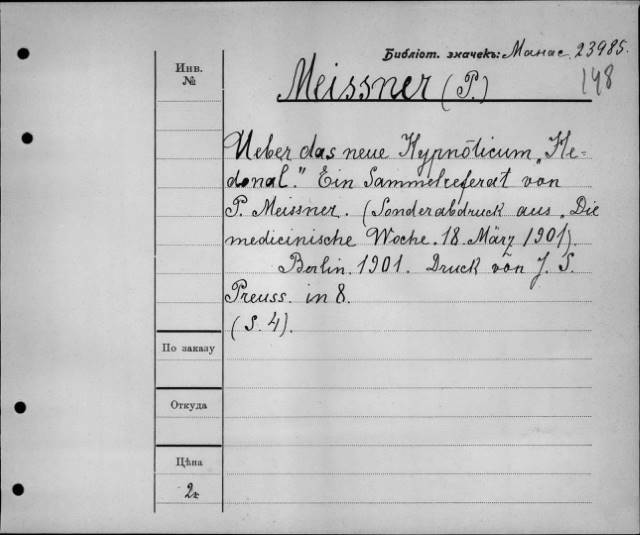 Библіот. значекъ: Манас. 23985.
148
Инв.
№
Meissner (P.)
Ueber das neue Hypnoticum „He-
donal." Ein Sammelreferat von
P. Meissner. (Sonderabdruck aus „Die
medicinische Woche. 18. März 1901).
Berlin. 1901. Druck von J. S.
Preuss. in 8.
(S. 4).
По заказу
Откуда
Цѣна